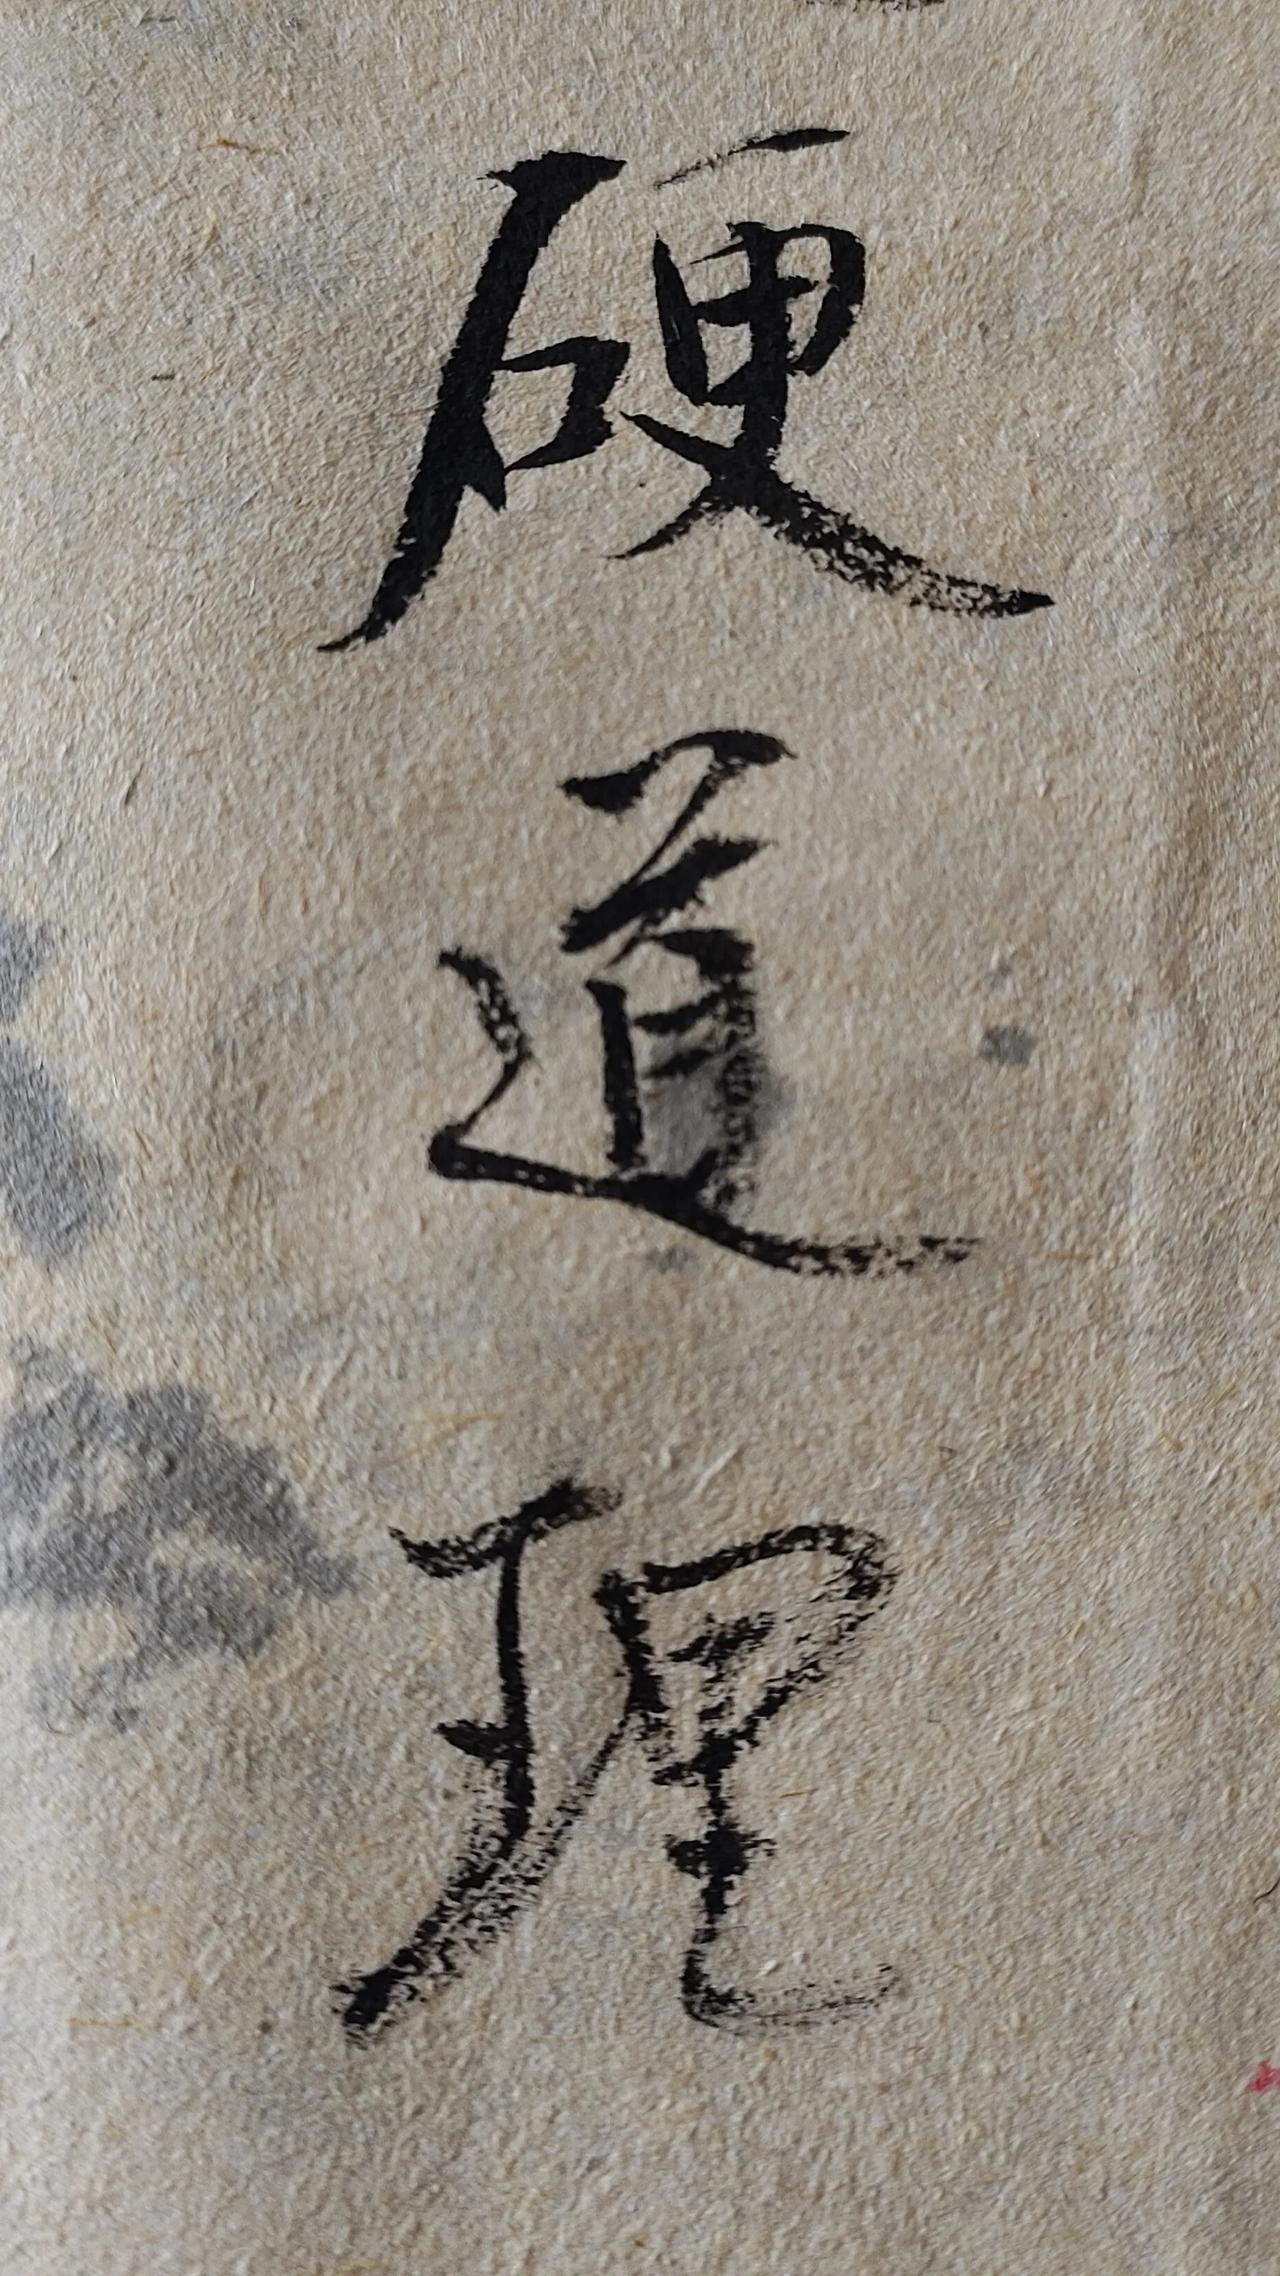 硬道理